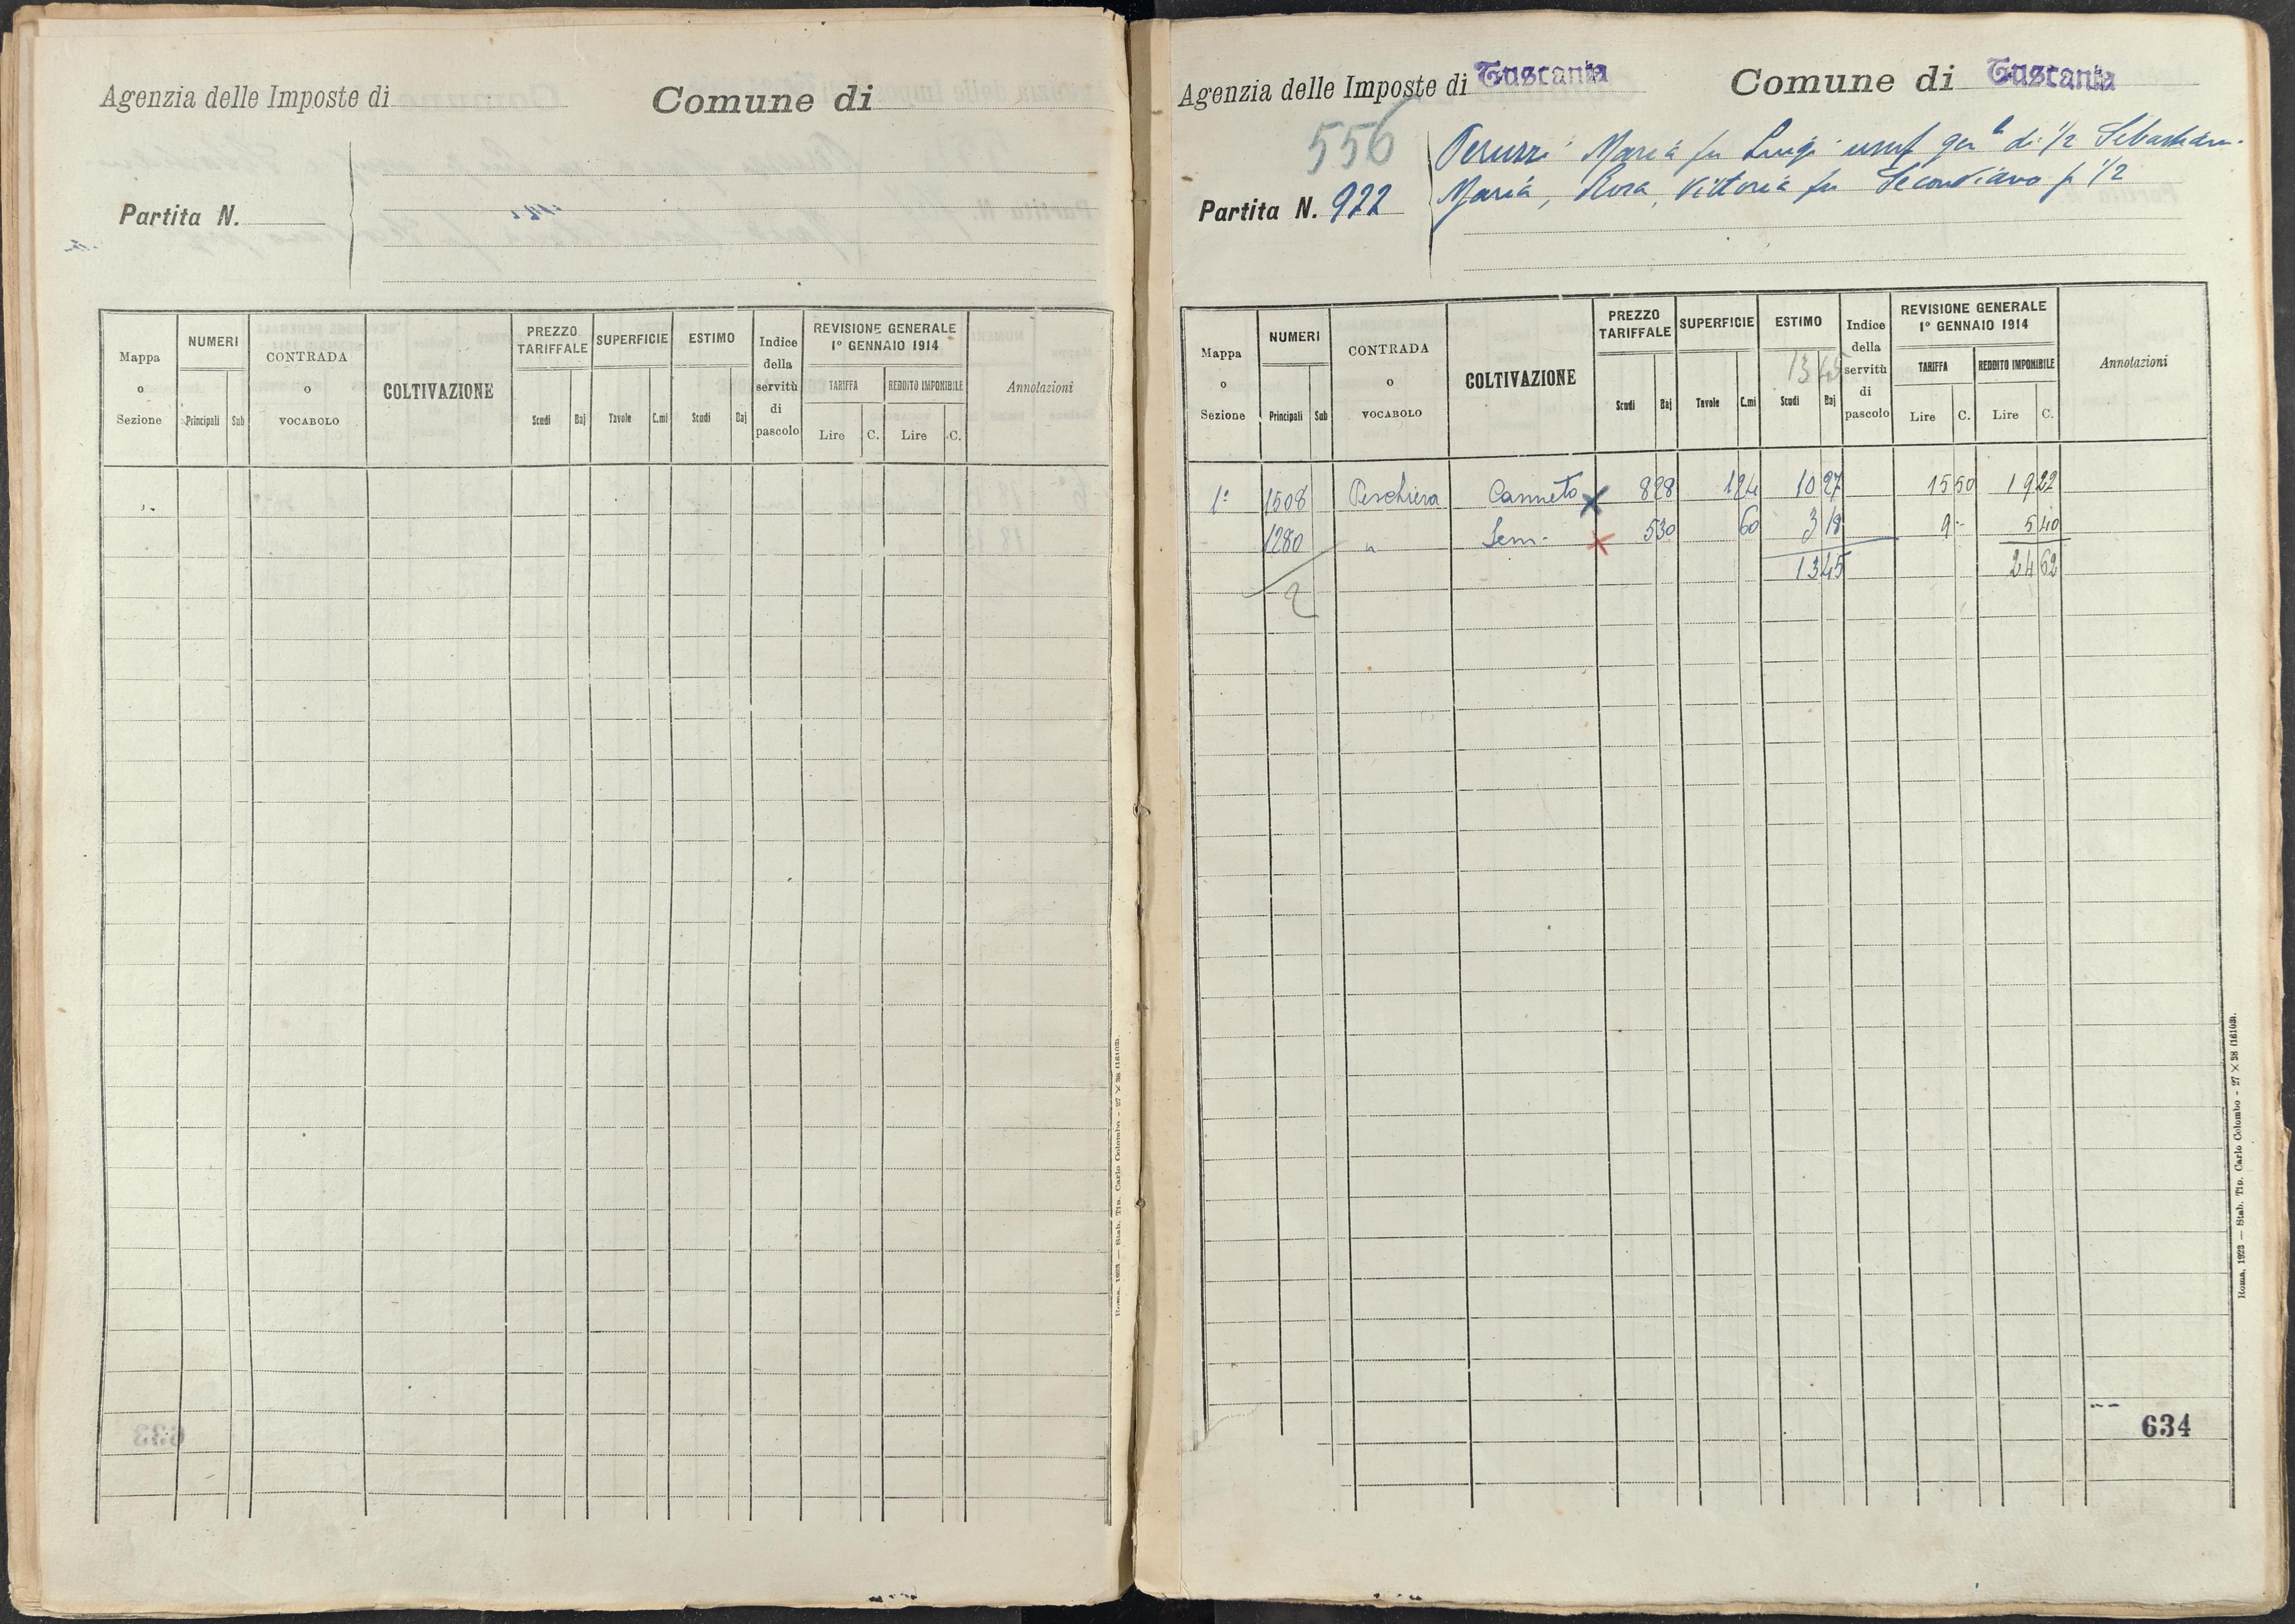 Agenzia delle Imposte di
Comune di
Partita N.
Mappa o Sezione
NUMERI
Principali
Sub
CONTRADA o VOCABOLO
COLTIVAZIONE
PREZZO TARIFFALE
Scudi
Baj
SUPERFICIE
Tavole
C.mi
ESTIMO
Scudi
Baj
Indice della servitù di pascolo
REVISIONE GENERALE 1° GENNAIO 1914
TARIFFA
Lire
C.
REDDITO IMPONIBILE
Lire
C.
Annotazioni
Roma, 1923 — Stab. Tip. Carlo Colombo - 27 × 38 (16103).
Agenzia delle Imposte di Tuscania
Comune di Tuscania
556
Partita N. 922
Peruzzi Maria fu Luigi usuf gen di 1/2 Sebastiani
Maria, Rosa, Vittoria fu Secondiano p 1/2
Mappa o Sezione
NUMERI
Principali
Sub
CONTRADA o VOCABOLO
COLTIVAZIONE
PREZZO TARIFFALE
Scudi
Baj
SUPERFICIE
Tavole
C.mi
ESTIMO
13 45
Scudi
Baj
Indice della servitù di pascolo
REVISIONE GENERALE 1° GENNAIO 1914
TARIFFA
Lire
C.
REDDITO IMPONIBILE
Lire
C.
Annotazioni
1ª 1508 Peschiera Canneto 8 28 1 24 10 27 15 50 19 22
1280 " Sem. 5 30 60 3 18 9 - 5 40
13 45 24 62
2
634
Roma, 1923 — Stab. Tip. Carlo Colombo - 27 × 38 (16103).